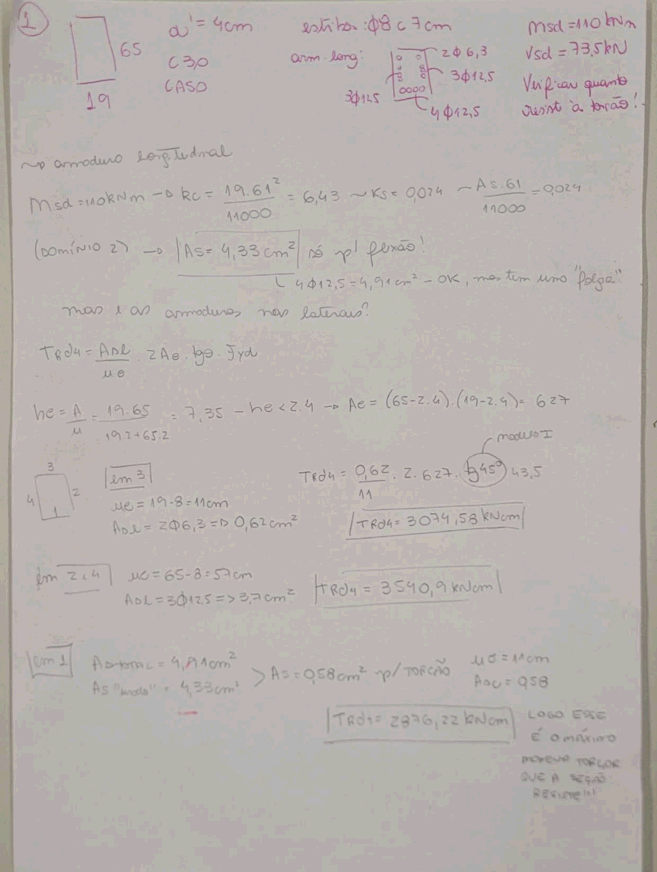 1
65
19
a' = 4cm
C30
CA50
estribo: ϕ8 c 7cm
arm. long:
2ϕ6,3
3ϕ12,5
3ϕ12,5
4ϕ12,5
Msd = 110 kNm
Vsd = 73,5kN
Verificar quanto
resist à torção!
~> armadura longitudinal
Msd = 110kNm → kc = 19.61² / 11000 = 6,43 ~ Ks = 0,024 ~ As.61 / 11000 = 0,024
(DOMÍNIO 2) → |As = 4,33 cm²| só p/ flexão!
↳ 4ϕ12,5 = 4,91cm² - OK, mas tem uma "folga"
mas e as armaduras nas laterais?
TRd4 = Asl / ue . 2Ae . tgθ . fyd
he = A / u = 19.65 / 19.2+65.2 = 7,35 - he < 2.4 → Ae = (65-2.4).(19-2.4) = 627
modelo I
3
4 2
1
em 3
ue = 19-8 = 11cm
Asl = 2ϕ6,3 => 0,62cm²
TRd4 = 0,62 / 11 . 2 . 627 . tg45° 43,5
|TRd4 = 3074,58 kNcm|
em 2 e 4
ue = 65-8 = 57cm
Asl = 3ϕ12,5 => 3,7cm²
|TRd4 = 3540,9 kNcm|
em 1
As TOTAL = 4,91cm²
As "usado" = 4,33cm²
> As = 0,58cm² p/ TORÇÃO
ue = 11cm
Asl = 0,58
|TRd4 = 2876,22 kNcm|
LOGO ESSE
É O MÁXIMO
MOMENTO TORÇOR
QUE A SEÇÃO
RESISTE!!!